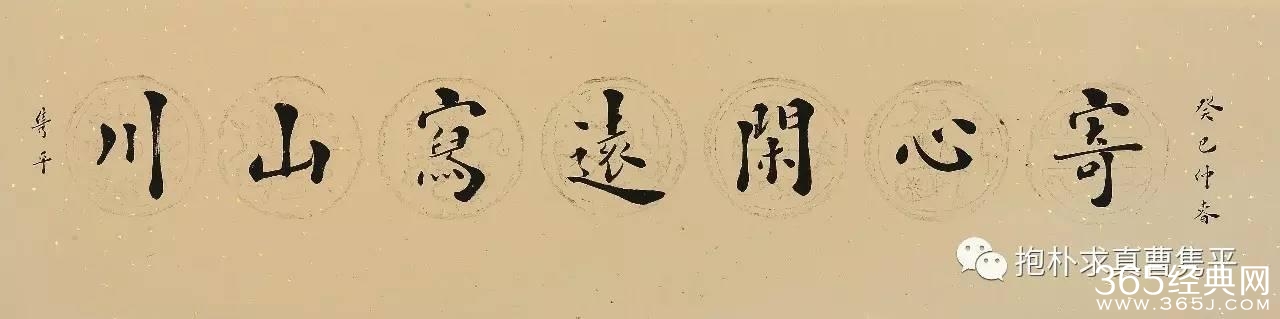 癸巳仲春
寄心閑遠寫山川
隽平
抱朴求真曹隽平
365经典网
WWW.365J.COM